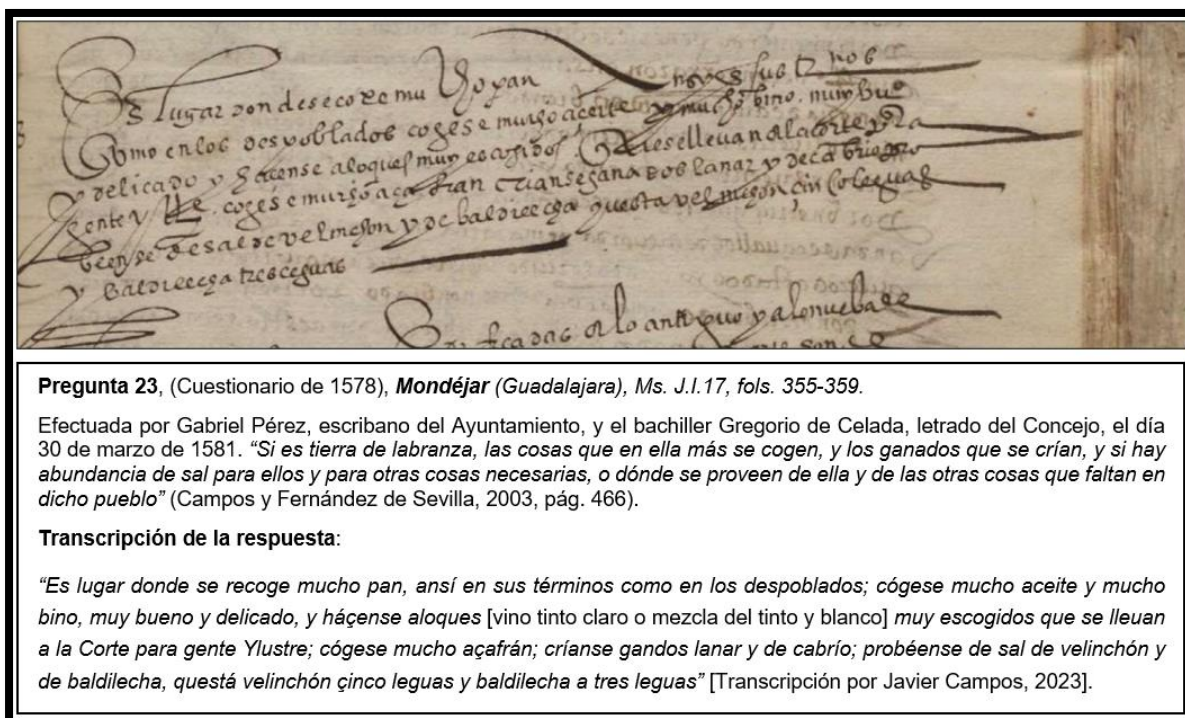 Es lugar donde se coxe mucho pan ansy en sus tnos
Como en los despoblados coxese mucho aceite y mucho bino. muy bue
y delicado y hacense aloques muy escoxidos que se llevan a la corte pa
gente ylle. coxese mucho açafran crianse ganados lanar y de cabrio pro
beense de sal de velinchon y de baldilecha questa velinchon çinco leguas
y baldilecha tres leguas
a lo antiguo y a lo nuebo de
Pregunta 23, (Cuestionario de 1578), Mondéjar (Guadalajara), Ms. J.I.17, fols. 355-359.
Efectuada por Gabriel Pérez, escribano del Ayuntamiento, y el bachiller Gregorio de Celada, letrado del Concejo, el día
30 de marzo de 1581. “Si es tierra de labranza, las cosas que en ella más se cogen, y los ganados que se crían, y si hay
abundancia de sal para ellos y para otras cosas necesarias, o dónde se proveen de ella y de las otras cosas que faltan en
dicho pueblo” (Campos y Fernández de Sevilla, 2003, pág. 466).
Transcripción de la respuesta:
“Es lugar donde se recoge mucho pan, ansí en sus términos como en los despoblados; cógese mucho aceite y mucho
bino, muy bueno y delicado, y háçense aloques [vino tinto claro o mezcla del tinto y blanco] muy escogidos que se lleuan
a la Corte para gente Ylustre; cógese mucho açafrán; críanse gandos lanar y de cabrío; probéense de sal de velinchón y
de baldilecha, questá velinchón çinco leguas y baldilecha a tres leguas” [Transcripción por Javier Campos, 2023].